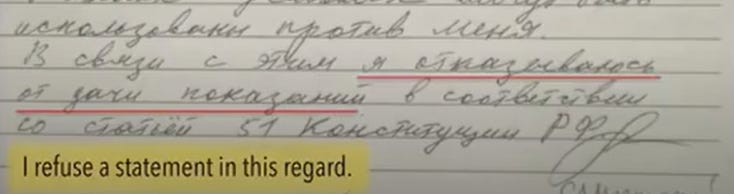 использованы против меня.
В связи с этим я отказываюсь
от дачи показаний в соответствии
со статьёй 51 Конституции РФ
I refuse a statement in this regard.